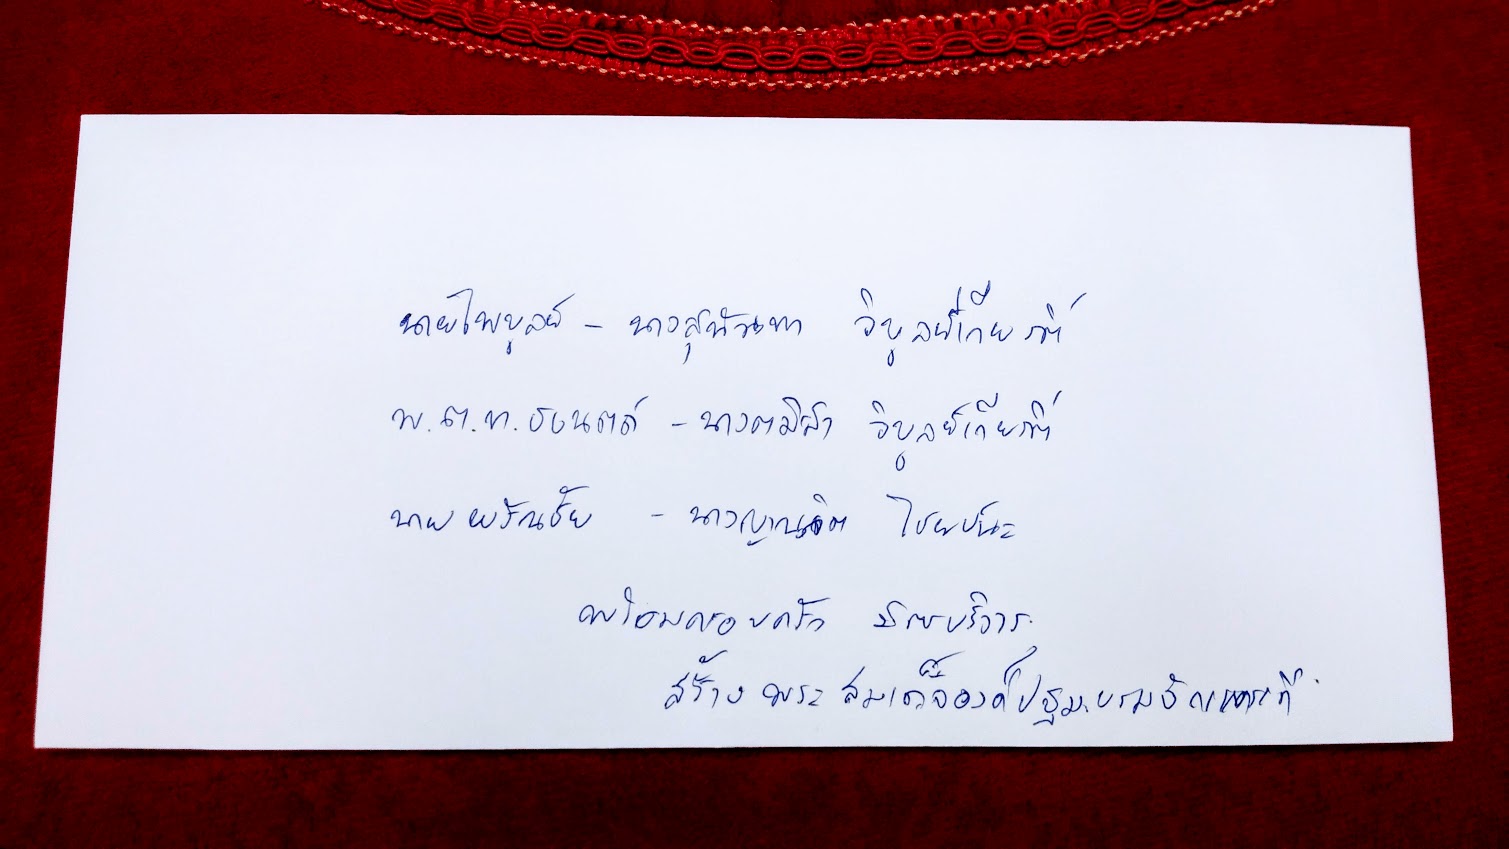 นายไพบูลย์ - นางสุนันทา วิบูลย์เกียรติ์
พ.ต.ท. ธงนตล์ - นาง วิบูลย์เกียรติ์
นาย พรัณชัย - นางญาณจิต ไชยชนะ
พร้อมครอบครัว มิตรบริวาร
สร้าง พระ สมเด็จองค์ปฐม